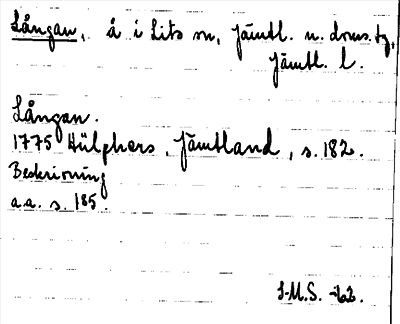 Långan, å i Lits sn, Jämtl. n. doms. tg,
Jämtl. l.
Långan.
1775 Hülphers, Jämtland, s. 182.
Beskrivning
a.a. s. 185.
S.M.S. -62.